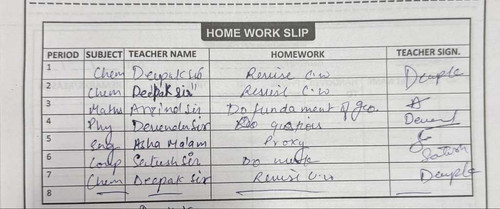 HOME WORK SLIP
PERIOD SUBJECT TEACHER NAME HOMEWORK TEACHER SIGN.
1 Chem Deepak Sir Revise C.w
2 Chem Deepak Sir" Revise C.w
3 Maths Arvind Sir Do fundament of geo.
4 Phy Devendra Sir Do questions
5 Eng Asha Ma'am Proxy
6 Comp Satush Sir Do Satish
7 Chem Deepak Sir Revise C.w
8